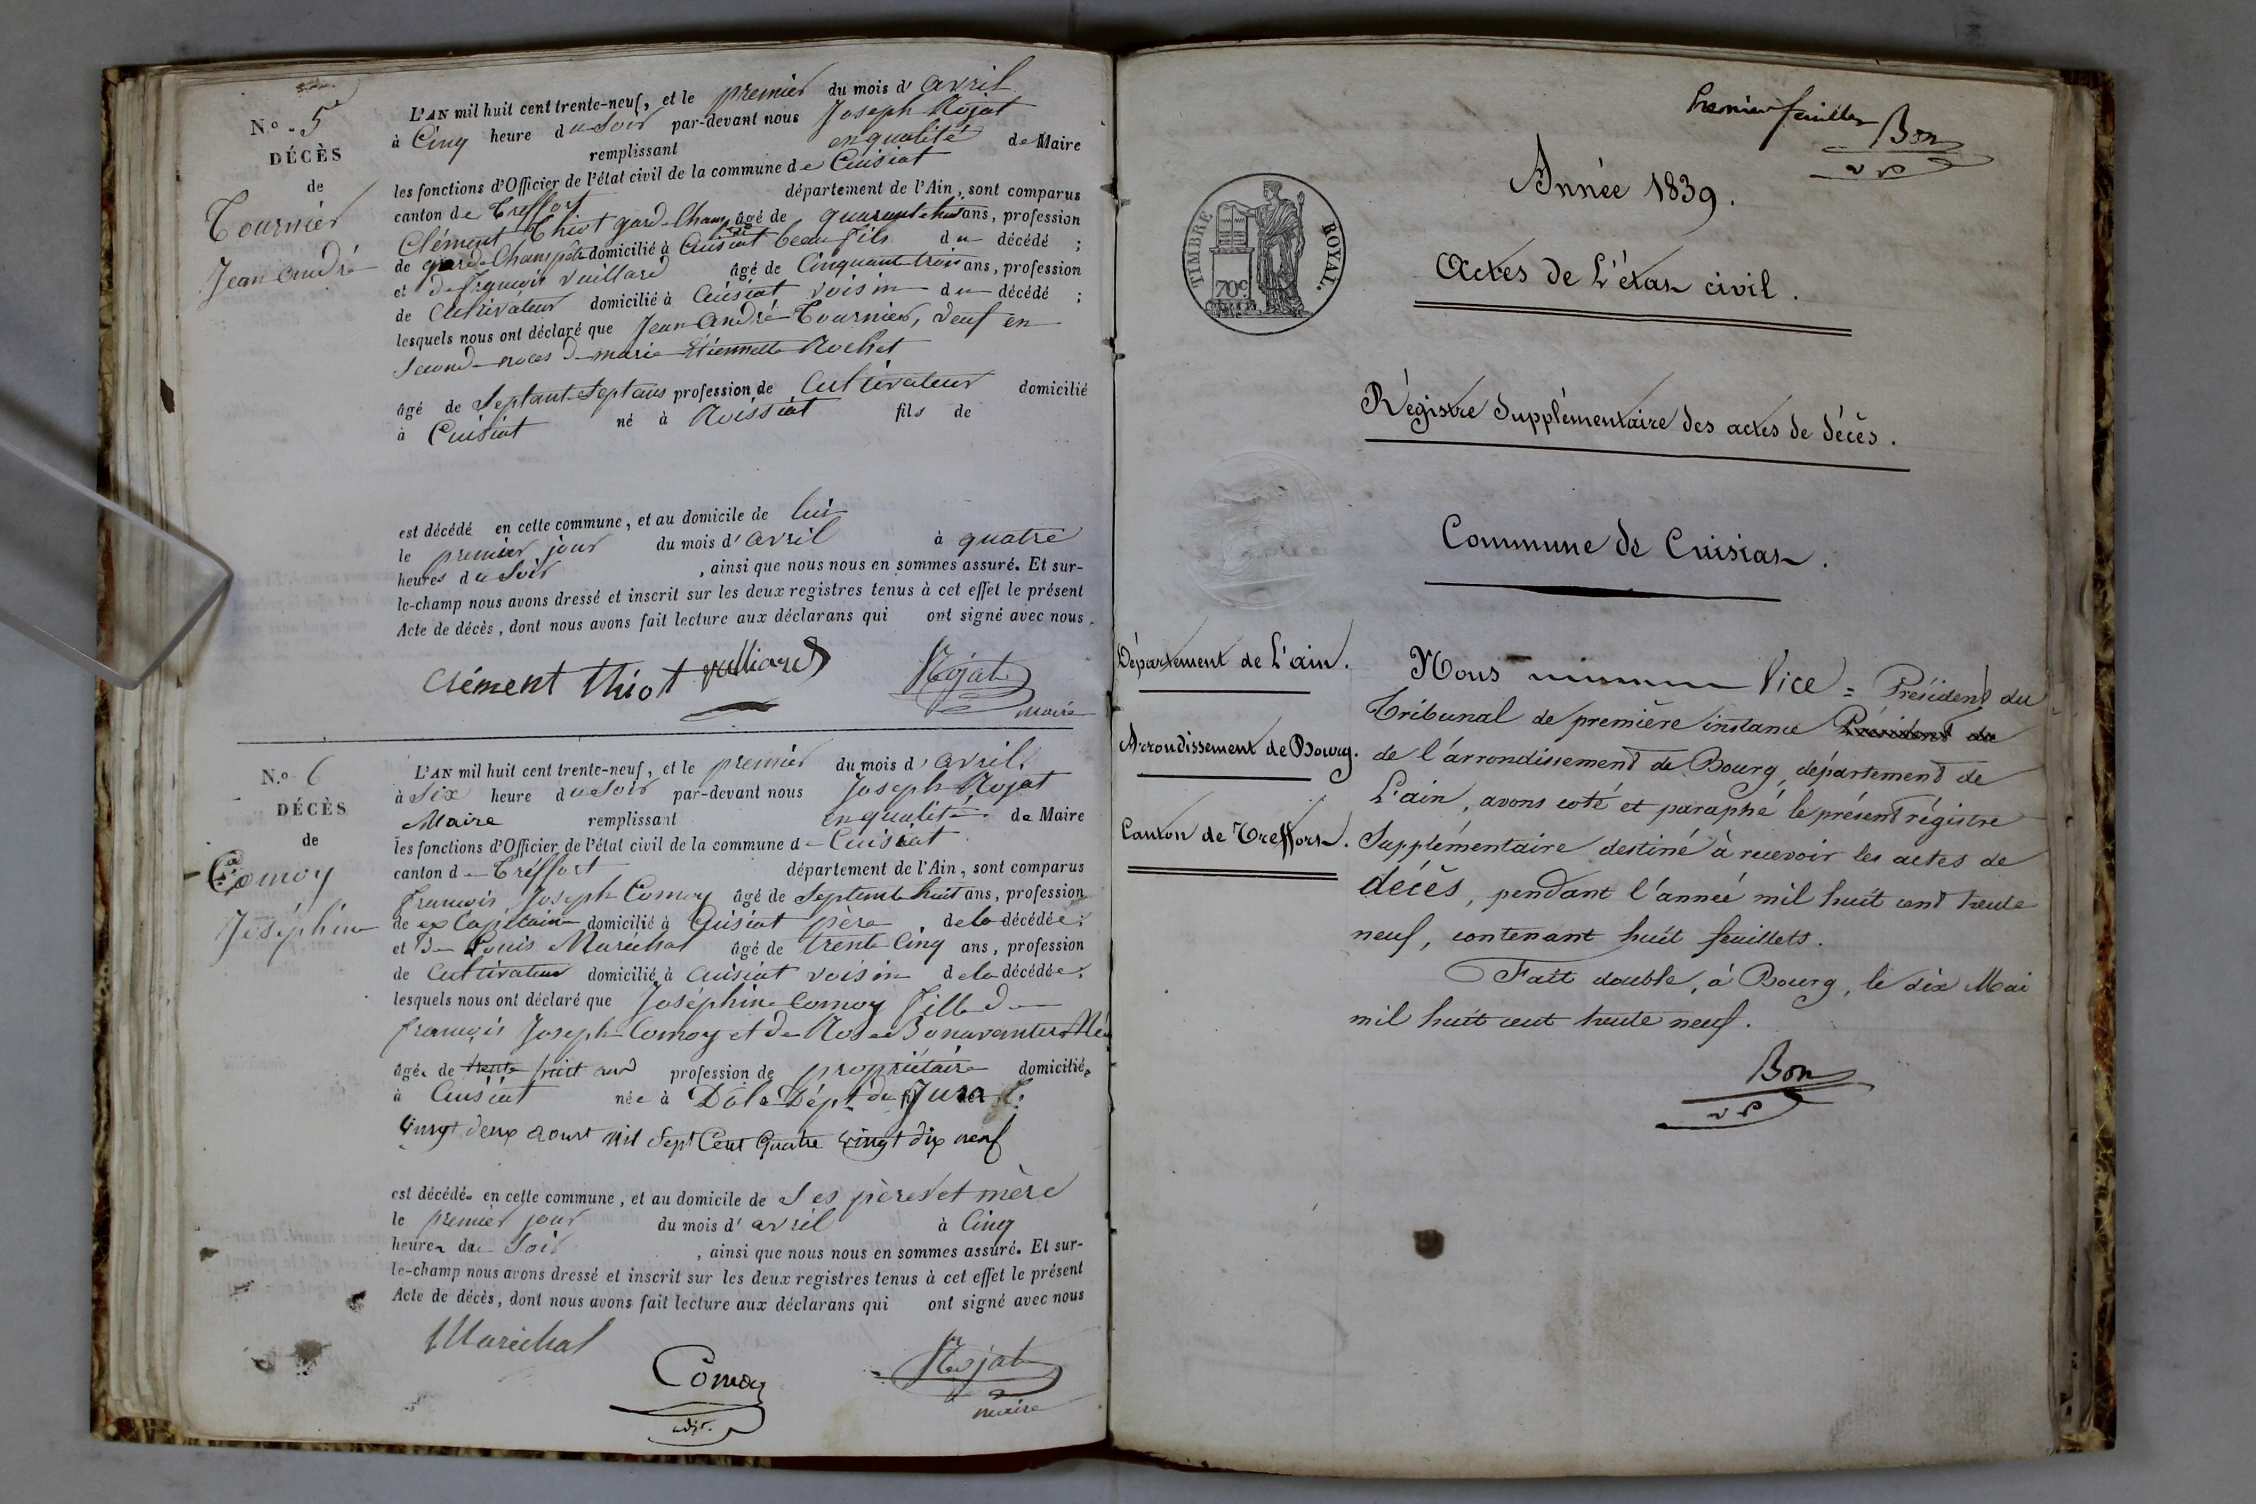 N.º 5
DÉCÈS
de
Tournier
Jean André
L'AN mil huit cent trente-neuf, et le premier du mois d'avril
à Cinq heure du Soir par-devant nous Joseph Nojat
remplissant en qualité de Maire
les fonctions d'Officier de l'état civil de la commune de Cuisiat
canton de Treffort département de l'Ain, sont comparus
Clément Thiot gard-Cham âgé de quarant huit ans, profession
de gard-Champêt domicilié à Cuisiat beau fils du décédé ;
et de françois Vuillard âgé de Cinquant trois ans, profession
de Cultivateur domicilié à Cuisiat voisin du décédé ;
lesquels nous ont déclaré que Jean André Tournier, veuf en
Second noces de marie Etiennette Rochet
âgé de Septant Sept ans profession de Cultivateur domicilié
à Cuisiat né à Roissiat fils de
est décédé en cette commune, et au domicile de lui
le premier jour du mois d'avril à quatre
heures du Soir , ainsi que nous nous en sommes assuré. Et sur-
le-champ nous avons dressé et inscrit sur les deux registres tenus à cet effet le présent
Acte de décès, dont nous avons fait lecture aux déclarans qui ont signé avec nous.
Clément thiot vulliard Nojat
maire
N.º 6
DÉCÈS
de
Comoy
Joséphine
L'AN mil huit cent trente-neuf, et le premier du mois d'avril
à Six heure du Soir par-devant nous Joseph Nojat
Maire remplissant en qualité de Maire
les fonctions d'Officier de l'état civil de la commune de Cuisiat
canton de Tréffort département de l'Ain, sont comparus
françois Joseph Comoy âgé de Septente huit ans, profession
de ex Capitaine domicilié à Cuisiat père de la décédée ;
et de Louis Maréchal âgé de trente Cinq ans, profession
de Cultivateur domicilié à Cuisiat voisin de la décédée ;
lesquels nous ont déclaré que Joséphine Comoy fille de
françois Joseph Comoy et de Rose Bonaventure
âgée de trente huit ans profession de propriétaire domiciliée
à Cuisiat née à Dole Dépt. du Jura le
vingt deux aoust mil Sept Cent Quatre vingt dix neuf
est décédée en cette commune, et au domicile de Ses pères et mère
le premier jour du mois d'avril à Cinq
heures du Soir , ainsi que nous nous en sommes assuré. Et sur-
le-champ nous avons dressé et inscrit sur les deux registres tenus à cet effet le présent
Acte de décès, dont nous avons fait lecture aux déclarans qui ont signé avec nous
Maréchal
Comoy Nojat
maire
Premier feuillet
Bon
v p
TIMBRE ROYAL.
70c
Année 1839.
Actes de L'état civil.
Régistre Supplémentaire des actes de décès.
Commune de Cuisiat.
Département de L'ain.
Arrondissement de Bourg.
Canton de Treffort.
Nous Vice = Président du
Tribunal de première instance Président du
de l'arrondissement de Bourg, département de
L'ain, avons coté et paraphé le présent régistre
Supplémentaire destiné à recevoir les actes de
décès, pendant l'année mil huit cent trente
neuf, contenant huit feuillets.
Fait double, à Bourg, le dix Mai
mil huit cent trente neuf.
Bon
v p